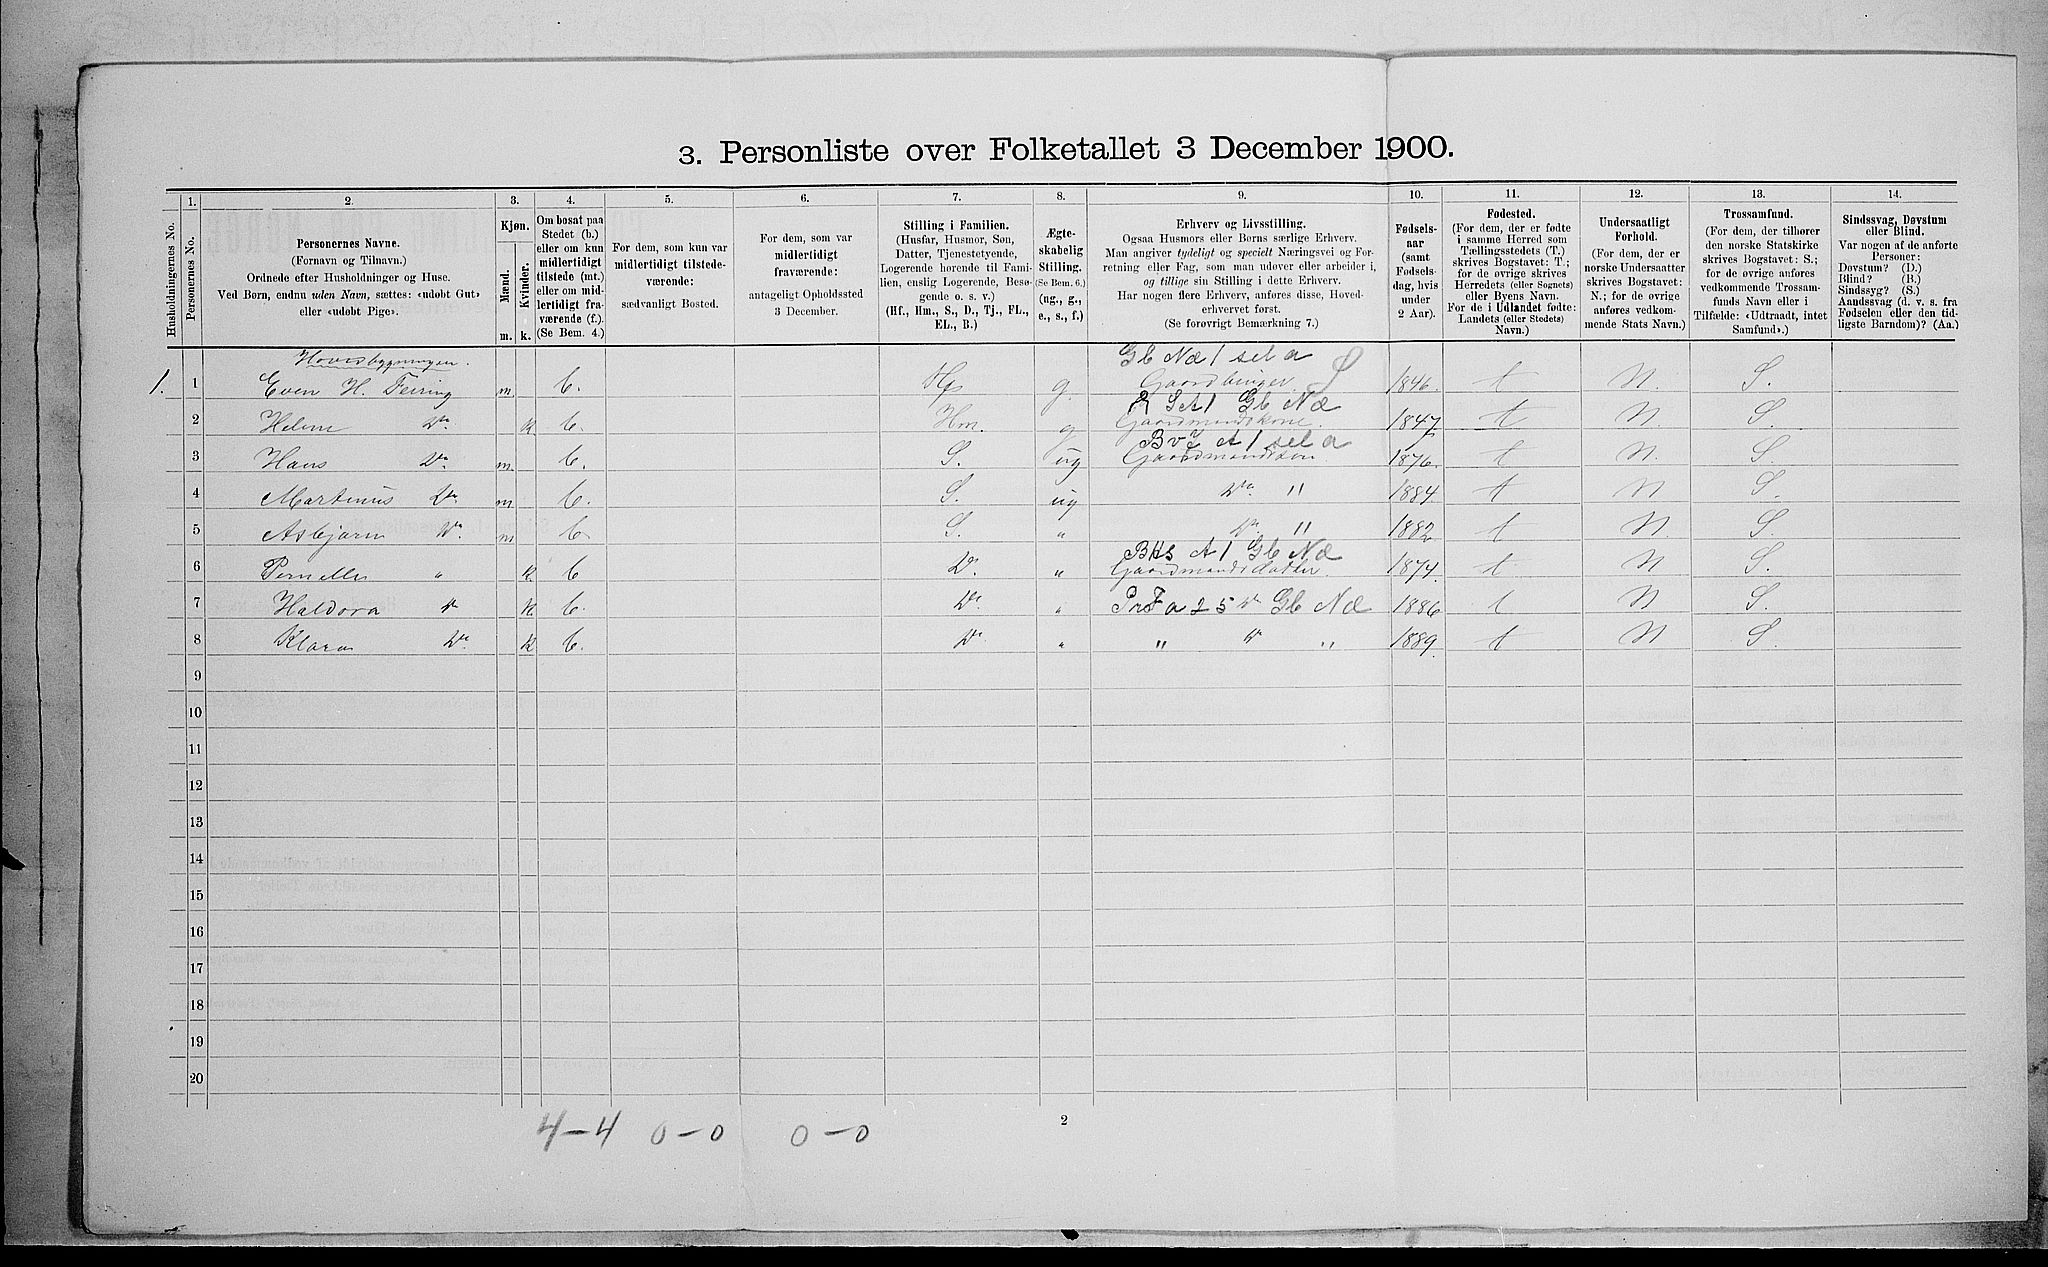 3. Personliste over Folketallet 3 December 1900.
Husholdningernes No.
1.
Personernes No.
2.
Personernes Navne.
(Fornavn og Tilnavn.)
Ordnede efter Husholdninger og Huse.
Ved Børn, endnu uden Navn, sættes: «udøbt Gut»
eller «udøbt Pige».
3.
Kjøn.
Mænd.
Kvinder.
m.
k.
4.
Om bosat paa
Stedet (b.)
eller om kun
midlertidigt
tilstede (mt.)
eller om mid-
lertidigt fra-
værende (f.).
(Se Bem. 4.)
5.
For dem, som kun var
midlertidigt tilstede-
værende:
sædvanligt Bosted.
6.
For dem, som var
midlertidigt
fraværende:
antageligt Opholdssted
3 December.
7.
Stilling i Familien.
(Husfar, Husmor, Søn,
Datter, Tjenestetyende,
Logerende hørende til Fami-
lien, enslig Logerende, Besø-
gende o. s. v.)
(Hf., Hm., S., D., Tj., FL.,
EL., B.)
8.
Ægte-
skabelig
Stilling.
(Se Bem. 6.)
(ug., g.,
e., s., f.)
9.
Erhverv og Livsstilling.
Ogsaa Husmors eller Børns særlige Erhverv.
Man angiver tydeligt og specielt Næringsvei og For-
retning eller Fag, som man udøver eller arbeider i,
og tillige sin Stilling i dette Erhverv.
Har nogen flere Erhverv, anføres disse, Hoved-
erhvervet først.
(Se forøvrigt Bemærkning 7.)
10.
Fødsels-
aar
(samt
Fødsels-
dag, hvis
under
2 Aar).
11.
Fødested.
(For dem, der er fødte
i samme Herred som
Tællingsstedets (T.)
skrives Bogstavet: T.;
for de øvrige skrives
Herredets (eller Sognets)
eller Byens Navn.
For de i Udlandet fødte:
Landets (eller Stedets)
Navn.)
12.
Undersaatligt
Forhold.
(For dem, der er
norske Undersaatter
skrives Bogstavet:
N.; for de øvrige
anføres vedkom-
mende Stats Navn.)
13.
Trossamfund.
(For dem, der tilhører
den norske Statskirke
skrives Bogstavet: S.;
for de øvrige anføres
vedkommende Trossam-
funds Navn eller i
Tilfælde: «Udtraadt, intet
Samfund».)
14.
Sindssvag, Døvstum
eller Blind.
Var nogen af de anførte
Personer:
Døvstum? (D.)
Blind? (B.)
Sindssyg? (S.)
Aandssvag (d. v. s. fra
Fødselen eller den tid-
ligste Barndom)? (Aa.)
Hovedbygningen. Gb Næ 1 sel a
1. 1 Even H. Feiring m b. Hf g. Gaardbruger S 1846. t N. S.
R S A 1 Gb Næ
2 Helene Do k b. Hm. g Gaardmandskone. 1847 t N. S
A 1 sel a
3 Hans Do m b. S. ug Gaardmandssøn. 1876. t N. S
4 Martinus Do. m b. S. ug Do. " 1884 t N S.
5 Asbjørn Do. m b. S. " Do " 1882 t N. S.
BHs A 1 Gb Næ
6 Pernelle " k. b D. " Gaardmandsdatter. 1874. t. N S.
7 Haldora Do k b. D. " Fa 25 Do Gb Næ 1886 t N S.
8 Klara Do. k b. D " " Do " 1889. t N S.
9
10
11
12
13
14
15
16
17
18
19
20
4-4 0-0 0-0
2